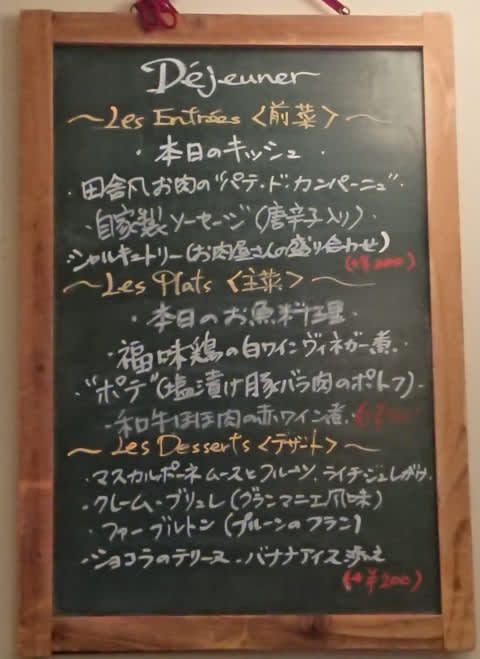 Déjeuner
～Les Entrées〈前菜〉～
・本日のキッシュ・
・田舎風お肉の"パテ・ド・カンパーニュ"・
・自家製ソーセージ(唐辛子入り)・
・シャルキュトリー(お肉屋さんの盛り合わせ)
(+¥200)
～Les Plats〈主菜〉～
・本日のお魚料理・
・福味鶏の白ワインヴィネガー煮・
・"ポテ"(塩漬け豚バラ肉のポトフ)・
・和牛ほほ肉の赤ワイン煮・
～Les Desserts〈デザート〉～
・マスカルポーネムースとフルーツ、ライチジュレがけ・
・クレーム・ブリュレ(グランマニエ風味)
・ファーブルトン(プルーンのフラン)
・ショコラのテリーヌ・バナナアイス添え
(+¥200)